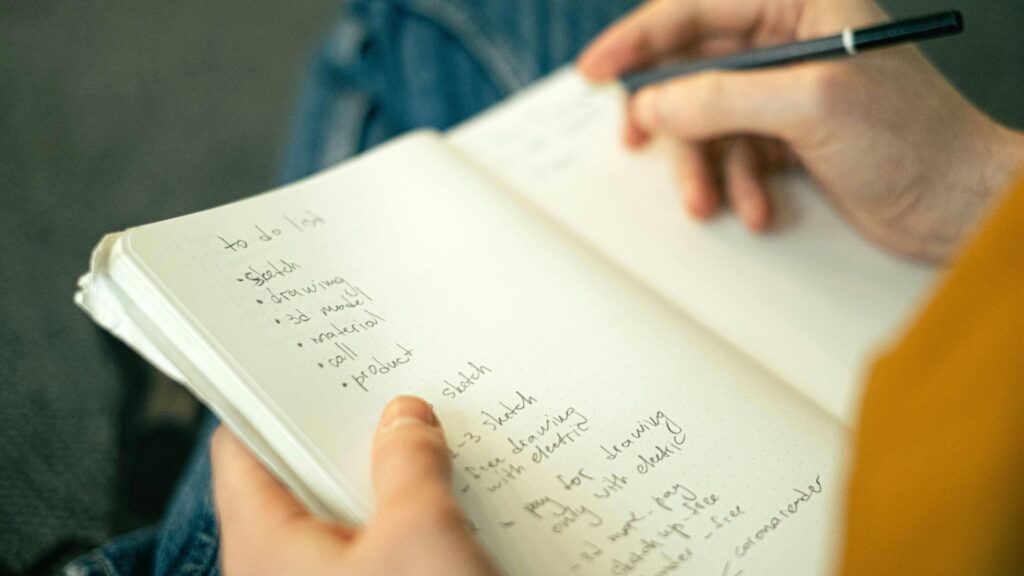 to do list
• sketch
• drawing
• 3d model
• material
• call
• product
sketch
2-3 sketch
- free drawing
with electric
- pay for drawing
only with elektic
pay
sketch up-free
- free
coronarender